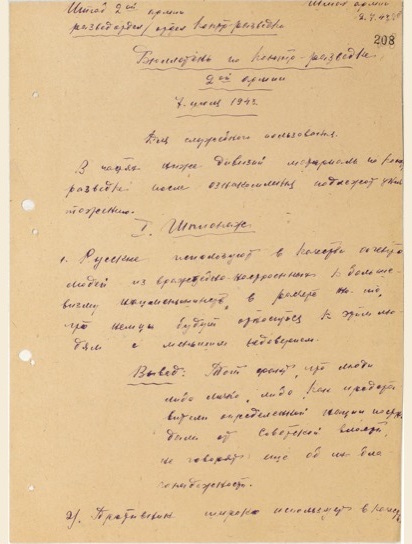 Штаб 2ой армии
Штаб армии
разведотдел/отдел контр-разведки
208
Бюллетень по контр-разведке
2ой армии
7 июля 1942
Для служебного пользования.
В частях ниже дивизий материалы по контр
разведке после ознакомления подлежат унич
тожению.
I. Шпионаж.
1. Русские используют в качестве агентов
людей из враждебно настроенных к больше-
визму нацменьшинств, в расчете на то,
что немцы будут относиться к этим лю-
дям с меньшим недоверием.
Вывод: Тот факт, что люди
либо лично, либо как предста
вители определенной нации постра
дали от советской власти,
не говорит еще об их бла
гонадежности.
2) Противник широко использует в качес